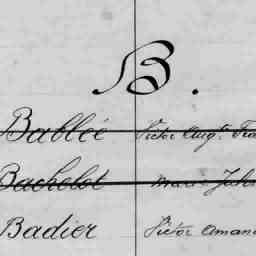 B.
Bablée Victor Aug.te Fra
Bachelot Marie Juli
Badier Victor Amand